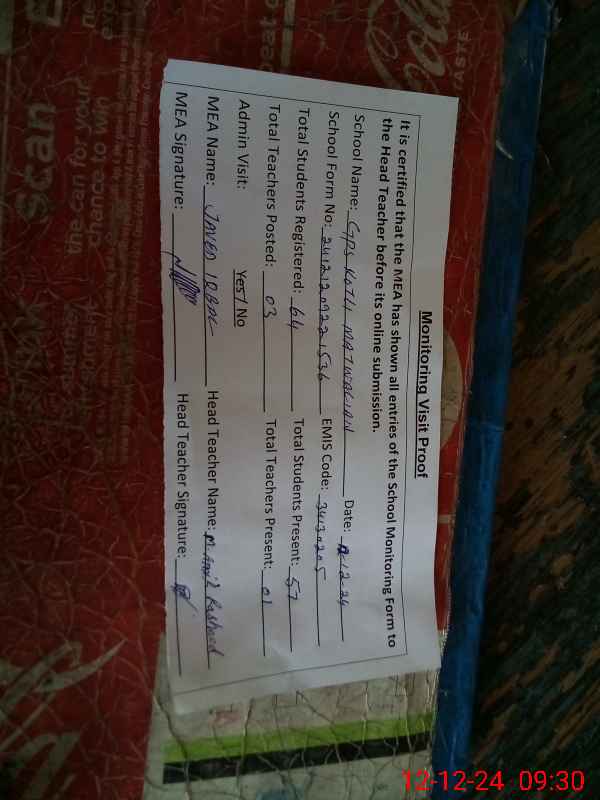 Monitoring Visit Proof
It is certified that the MEA has shown all entries of the School Monitoring Form to
the Head Teacher before its online submission.
School Name: GPS KOTLI MATWALIAN Date: 12-12-24
School Form No: 24121209221536 EMIS Code: 34130205
Total Students Registered: 64 Total Students Present: 57
Total Teachers Posted: 03 Total Teachers Present: 01
Admin Visit: Yes / No
MEA Name: JAVED IQBAL Head Teacher Name: Rasheed
MEA Signature: Head Teacher Signature:
ASTE
Scan
12-12-24 09:30